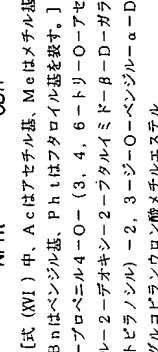 NPht OBn
[式 (XVI) 中、Acはアセチル基、Meはメチル基
Bnはベンジル基、Phtはフタロイル基を表す。]
−プロペニル4−O−(3,4,6−トリ−O−アセ
ル−2−デオキシ−2−フタルイミド−β−D−ガラ
トピラノシル)−2,3−ジ−O−ベンジル−α−D
グルコピランウロン酸メチルエステル